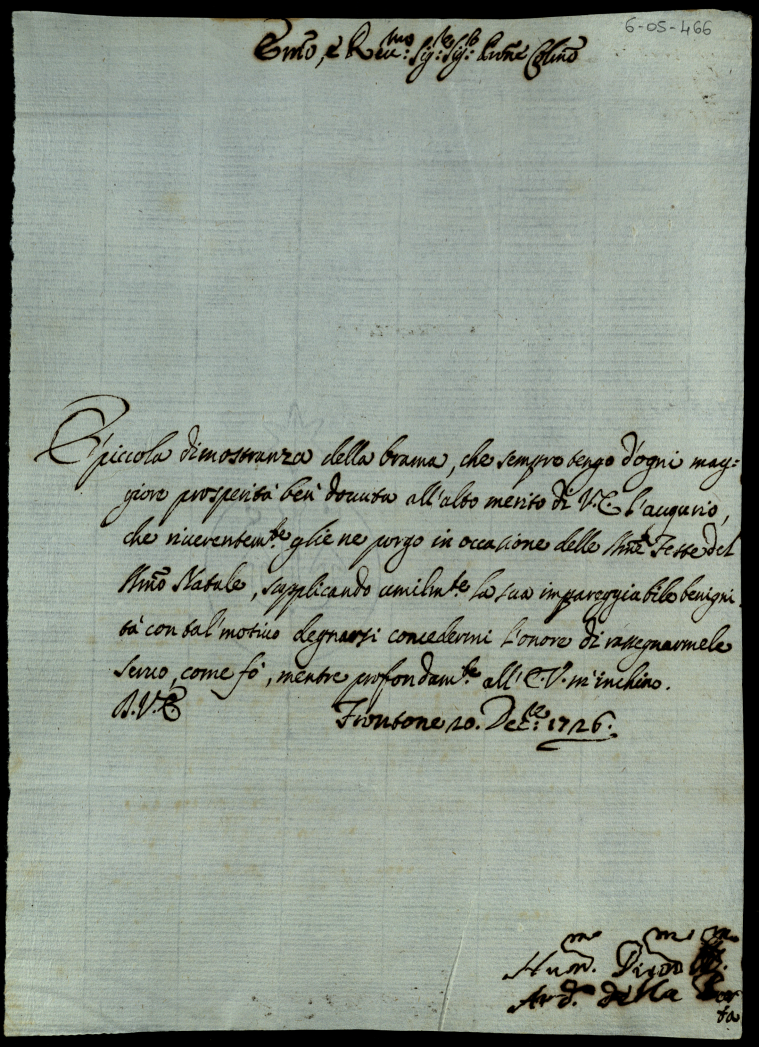 6-05-466
Emo, e Reu:mo Sig:re Sig:r Prone Colmo
È piccola dimostranza della brama, che sempre tengo d'ogni mag=
giore prosperità ben douuta all'alto merito di V.E. l'augurio,
che riuerentemte glie ne porgo in occasione delle Sme Feste del
Smo Natale, supplicando umilmte la sua impareggiabile benigni
tà con tal motiuo degnarsi concedermi l'onore di rassegnarmele
seruo, come fò, mentre profondamte all'E.V. m'inchino.
D.V.E.
Frontone 20. Dec:re 1726.
Hum.mo Diuo.mo
And.a della Por
ta